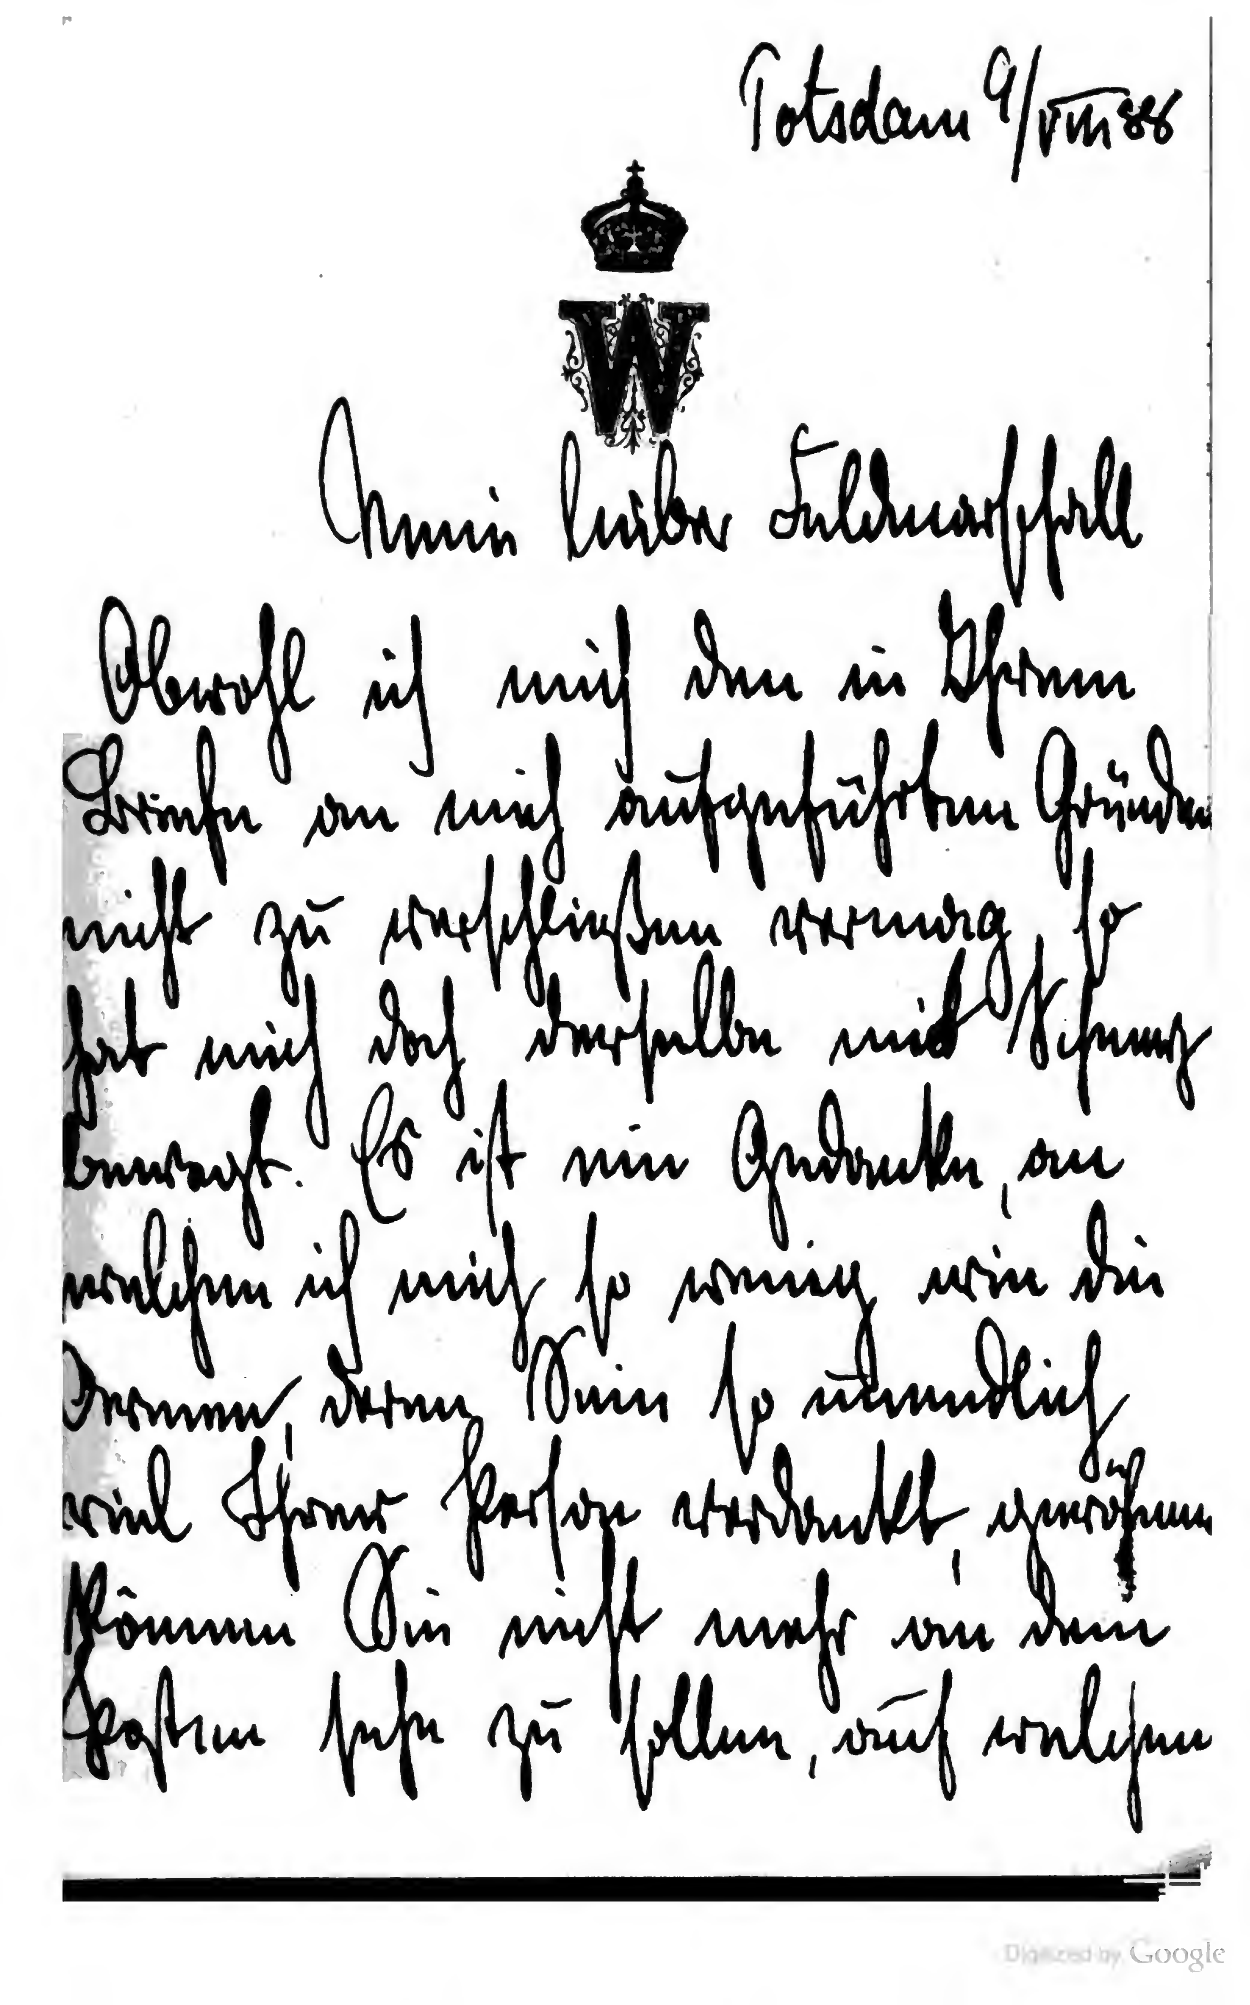 Potsdam 9/VIII 88
W
Mein lieber Feldmarschall
Obwohl ich mich den in Ihrem
Briefe an mich aufgeführten Gründen
nicht zu verschließen vermag, so
hat mich doch derselbe mit Schmerz
bewegt. Es ist ein Gedanke, an
welchen ich mich so wenig wie die
Armee, deren Sein so unendlich
viel Ihrer Person verdankt, gewöhnen
können Sie nicht mehr an dem
Posten sehn zu sollen, auf welchen
Digitized by Google